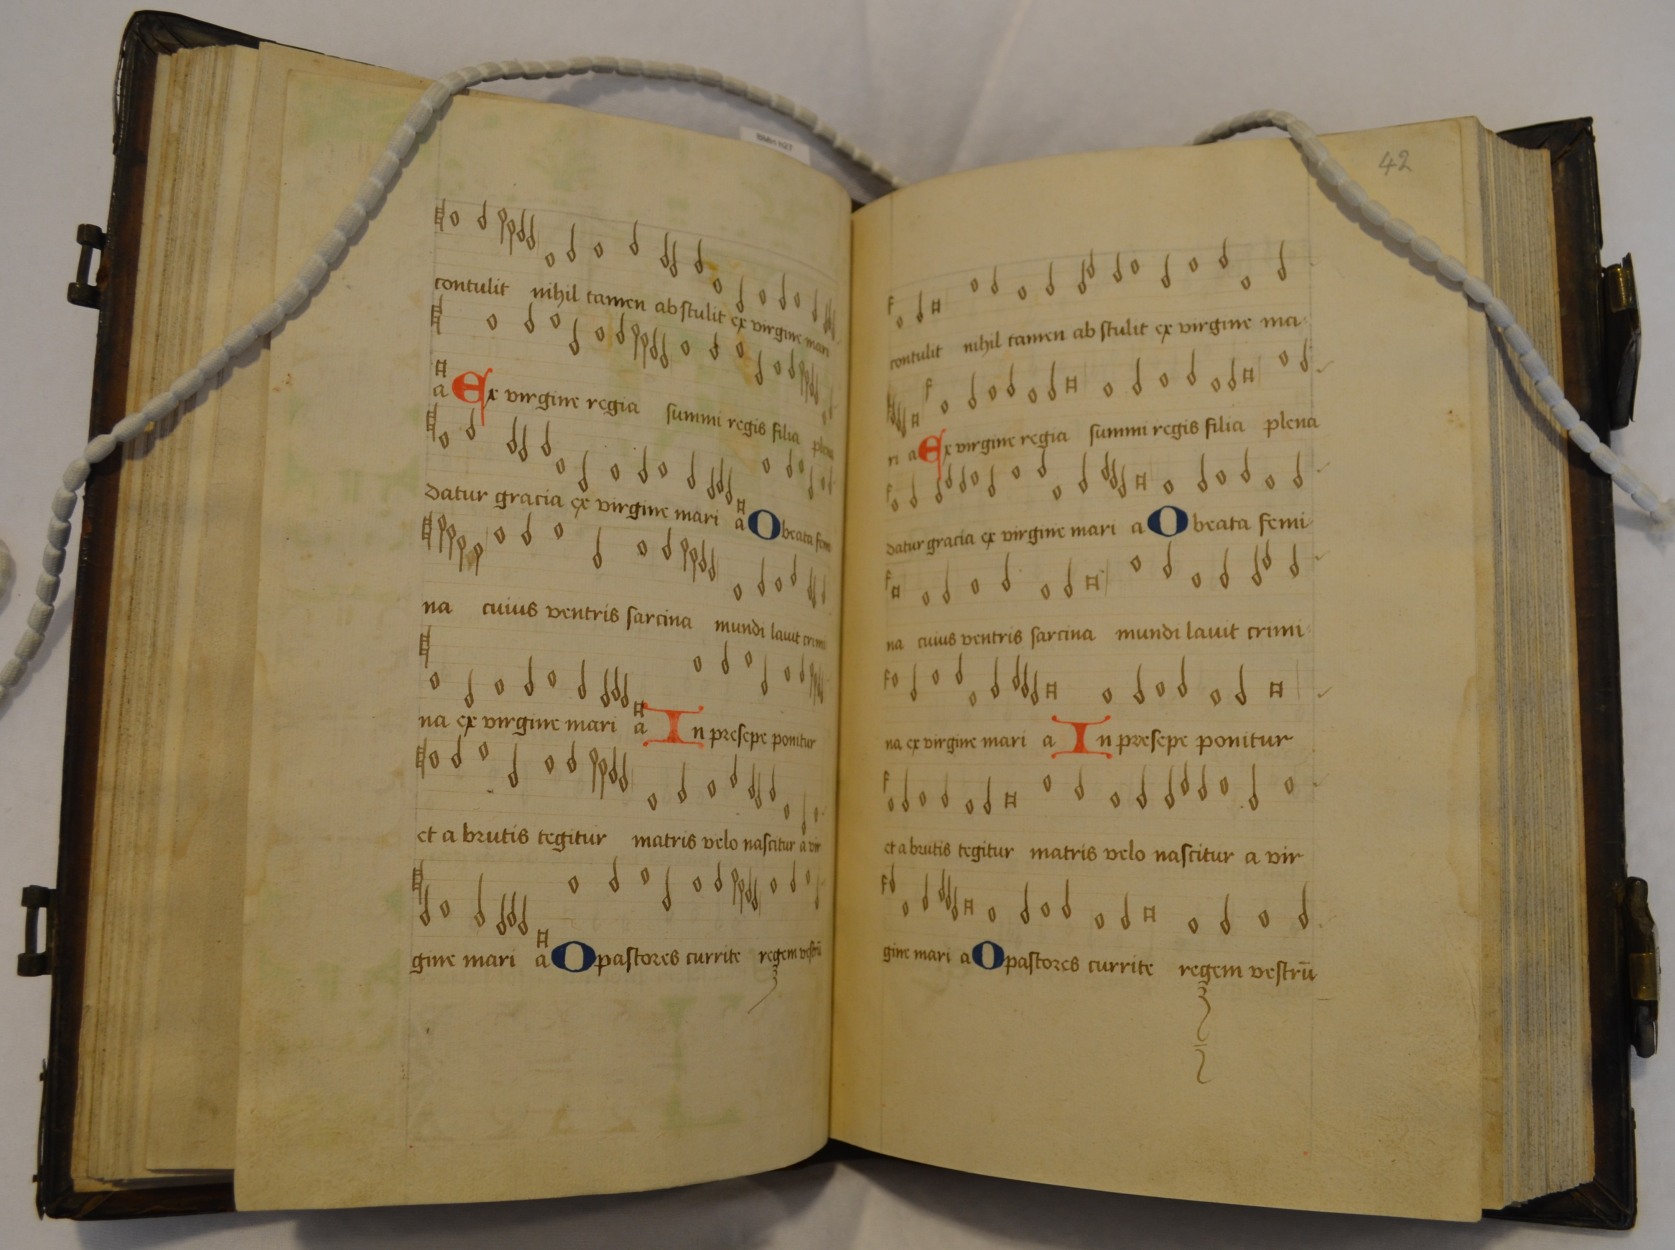 contulit nihil tamen abstulit ex virgine mari
a Ex virgine regia summi regis filia plena
datur gracia ex virgine mari a O beata femi
na cuius ventris sarcina mundi lavit crimi
na ex virgine mari a In presepe ponitur
et a brutis tegitur matris velo nascitur a vir
gine mari a O pastores currite regem vestrū
42
contulit nihil tamen abstulit ex virgine ma
ri a Ex virgine regia summi regis filia plena
datur gracia ex virgine mari a O beata femi
na cuius ventris sarcina mundi lavit crimi
na ex virgine mari a In presepe ponitur
et a brutis tegitur matris velo nascitur a vir
gine mari a O pastores currite regem vestrū